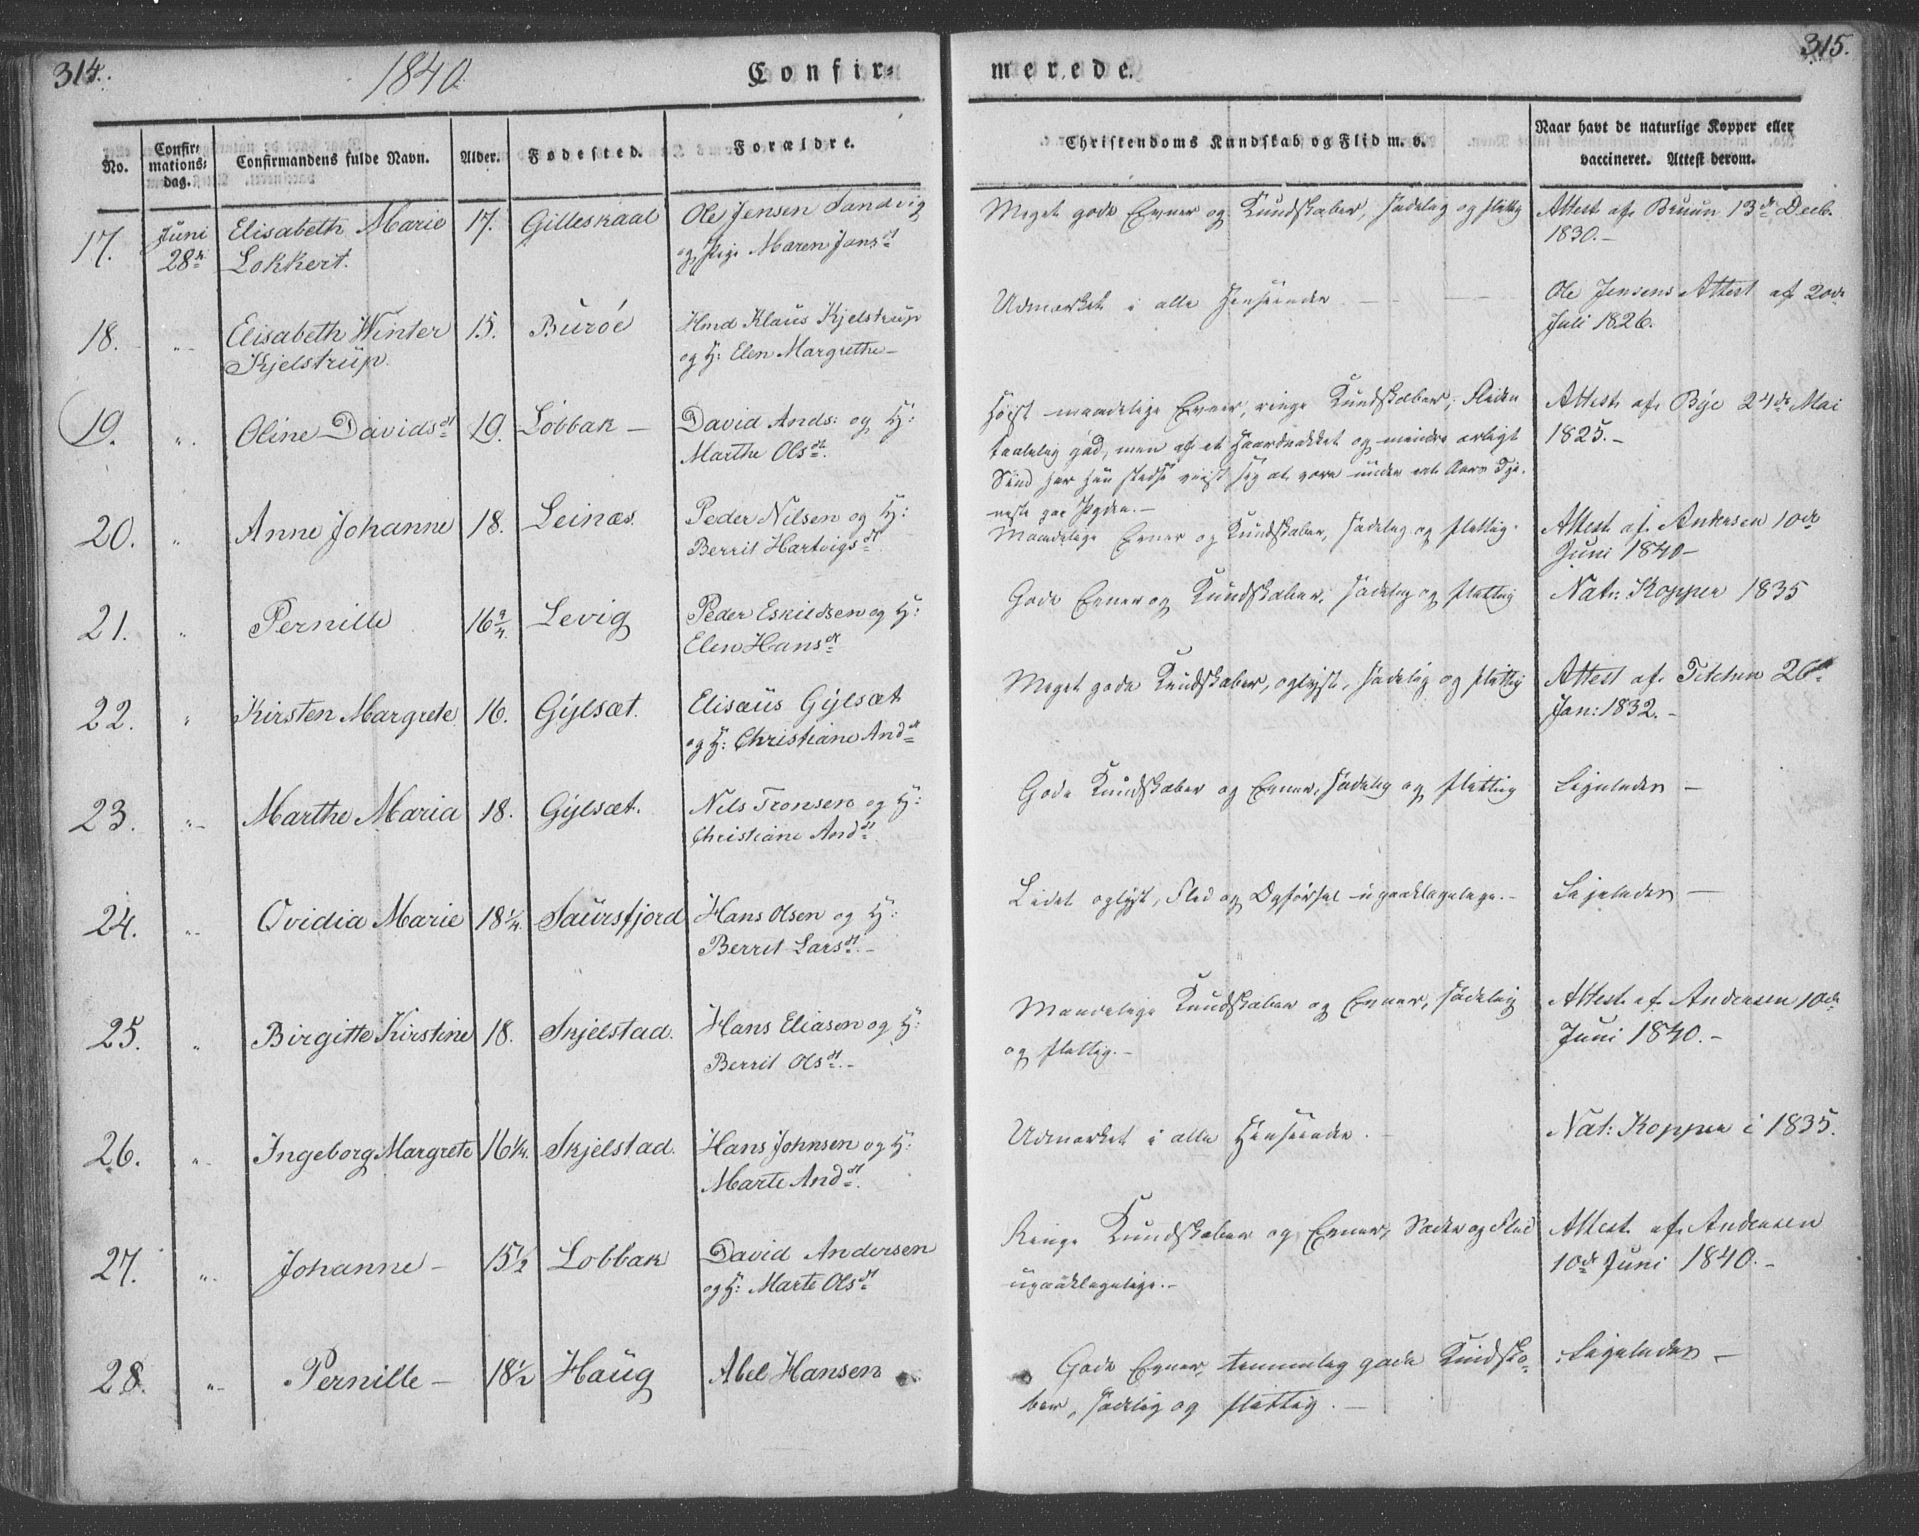 314.
1840.
Confir=
merede.
315.
No.
Confir=
mations=
dag.
Confirmandens fulde Navn.
Alder.
Fødested.
Forældre.
Christendoms Kundskab og Flid m. v.
Naar havt de naturlige Kopper eller
vaccineret. Attest derom.
17.
Juni
28de
Elisabeth Marie
Lokkert.
17.
Gilleskaal
Ole Jensen Sandvig
og Pige Maren Jansdt
Meget gode Evner og Kundskaber, sædelig og flittig
Attest af Bruun 13de Decb.
1830.-
18.
Elisabeth Winter
Kjelstrup.
15.
Burøe
Hmd Klaus Kjelstrup
og H: Elen Margrethe-
Udmærket i alle Henseender
Ole Jensens Attest af 20de
Juli 1826.
19.
Oline Davidsdt
19.
Løbbak -
David Ands: og H:
Marthe Olsdt.
Høist maadelige Evner, ringe Kundskaber; Fliden
taalelig god, men af et haardnakket og mindre ærligt
Sind har hun stedse viist sig at være under et Aars Tje-
neste paa Pgden.-
Attest af Bye 24de Mai
1825.-
20.
Anne Johanne
18.
Leinæs.
Peder Nilsen og H:
Berrit Hartvigsdt.
Maadelige Evner og Kundskaber, sædelig og flittig.
Attest af Andersen 10de
Juni 1840-
21.
Pernille
16 3/4.
Levig
Peder Eskildsen og H:
Elen Hansdt
Gode Evner og Kundskaber, sædelig og flittig
Nat: Kopper 1835
22.
Kirsten Margrete.
16.
Gylsæt.
Elisæus Gylsæt
og H: Christiane Anddt
Meget gode Kundskaber, oplyst, sædelig og flittig
Attest af 26de
Jan: 1832.-
23.
Marthe Maria
18.
Gylsæt.
Nils Tronsen og H:
Christiane Anddt
Gode Kundskaber og Evner, sædelig og flittig
Ligeledes -
24.
Ovidia Marie
18 1/4.
Saursfjord
Hans Olsen og H:
Berret Larsdt.-
Lidet oplyst, Flid og Opførsel upaaklagelige.-
Ligeledes -
25.
Birgitte Kirstine
18.
Skjelstad.
Hans Eliasen og H:
Berrit Olsdt.-
Maadelige Kundskaber og Evner, sædelig
og flittig.-
Attest af Andersen 10de
Juni 1840.-
26.
Ingeborg Margrete
16 1/4.
Skjelstad.
Hans Johnsen og H:
Marte Anddt.
Udmærket i alle Henseender.
Nat: Kopper i 1835.
27.
Johanne -
15 1/2
Løbbak
David Andersen
og H: Marte Olsdt
Ringe Kundskaber og Evner, Sæder og Flid
upaaklagelige.-
Attest af Andersen
10de Juni 1840.-
28.
Pernille -
18 1/2
Haug
Abel Hansen
Gode Evner, temmelig gode Kundska-
ber, sædelig og flittig.-
Ligeledes -